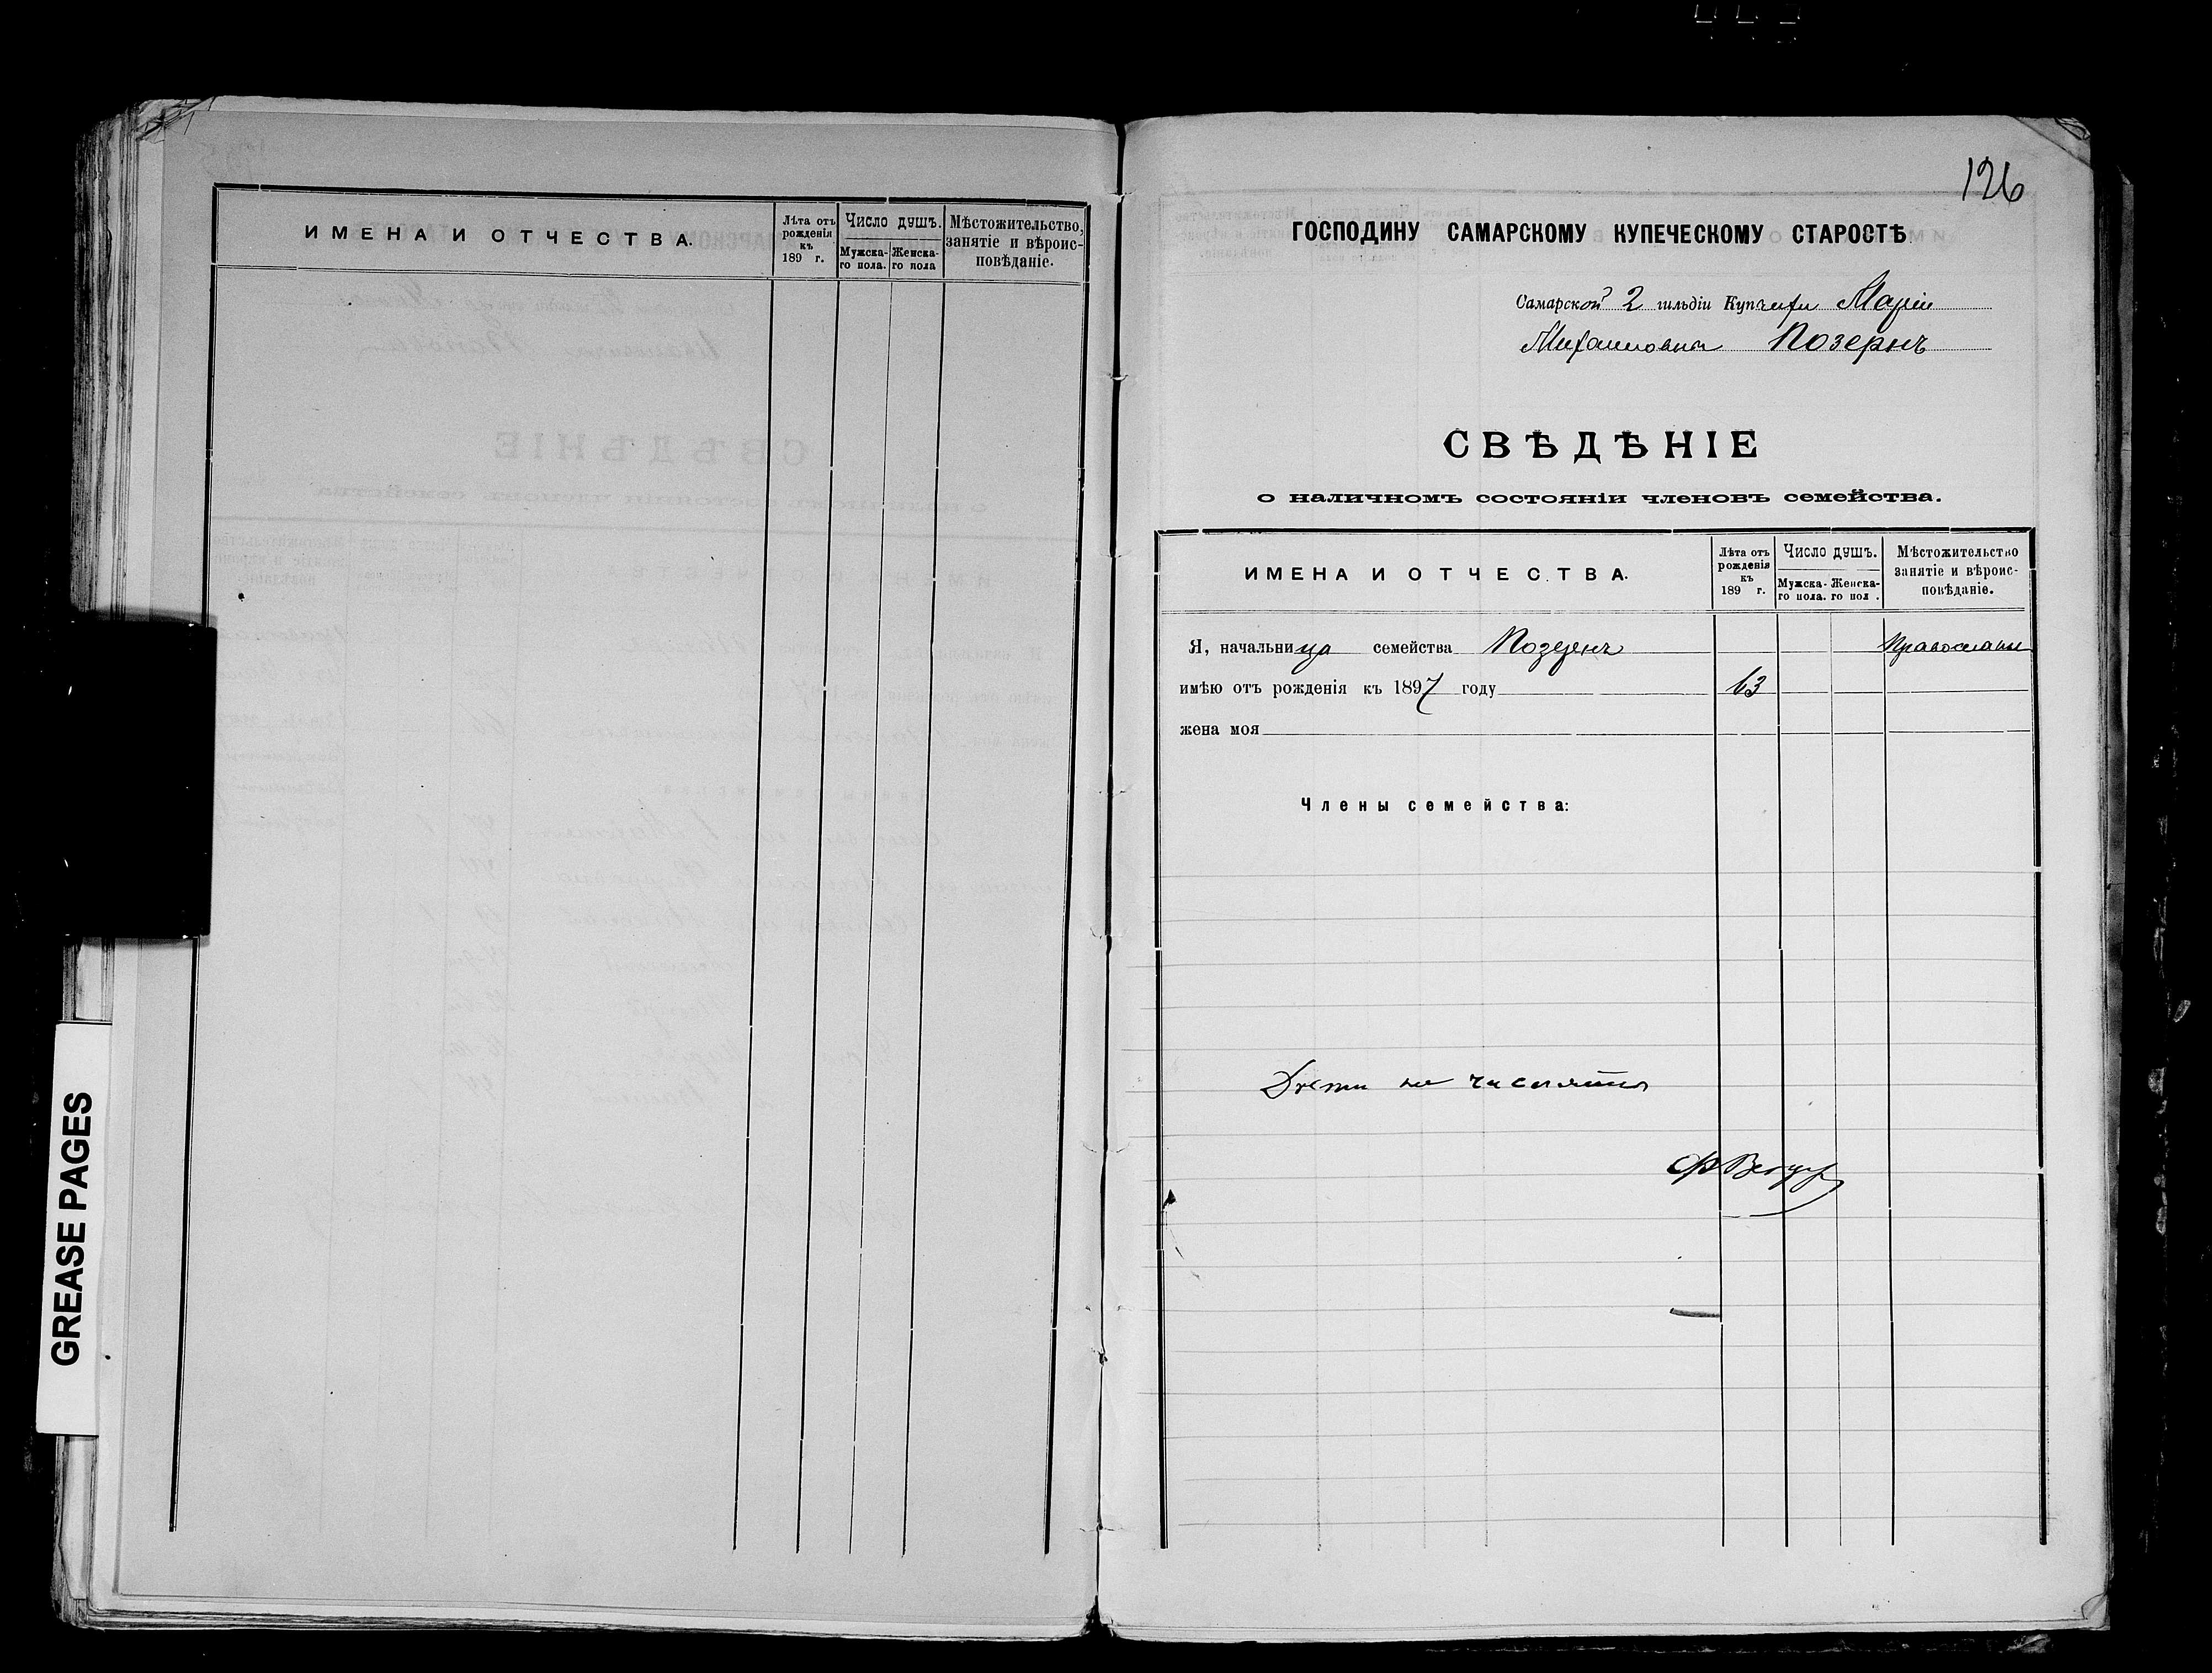 ИМЕНА И ОТЧЕСТВА.
Лѣта отъ рожденія къ 189 г.
Число душъ.
Мужска-го пола.
Женска-го пола
Мѣстожительство, занятіе и вѣроис-повѣданіе.
GREASE PAGES
126
ГОСПОДИНУ САМАРСКОМУ КУПЕЧЕСКОМУ СТАРОСТѢ
Самарской 2 гильдіи Купчихи Маріи
Михаиловны Позернъ
СВѢДѢНІЕ
о наличномъ состояніи членовъ семейства.
ИМЕНА И ОТЧЕСТВА.
Лѣта отъ рожденія къ 189 г.
Число душъ.
Мужска-го пола.
Женска-го пол .
Мѣстожительство занятіе и вѣроис-повѣданіе.
Я, начальница семейства Позернъ
имѣю отъ рожденія къ 1897 году 63
жена моя
Члены семейства:
Дѣти не числятся